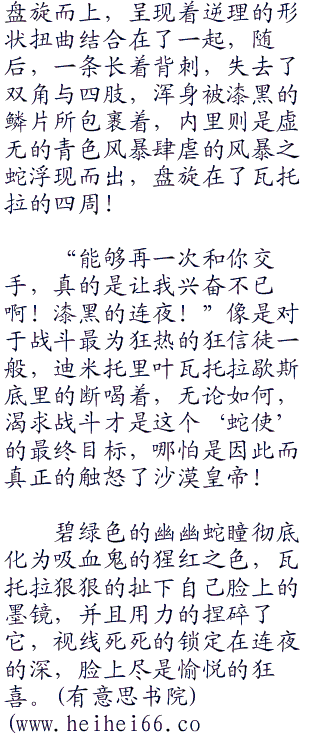 盘旋而上，呈现着逆理的形
状扭曲结合在了一起，随
后，一条长着背刺，失去了
双角与四肢，浑身被漆黑的
鳞片所包裹着，内里则是虚
无的青色风暴肆虐的风暴之
蛇浮现而出，盘旋在了瓦托
拉的四周！
“能够再一次和你交
手，真的是让我兴奋不已
啊！漆黑的连夜！”像是对
于战斗最为狂热的狂信徒一
般，迪米托里叶瓦托拉歇斯
底里的断喝着，无论如何，
渴求战斗才是这个‘蛇使’
的最终目标，哪怕是因此而
真正的触怒了沙漠皇帝！
碧绿色的幽幽蛇瞳彻底
化为吸血鬼的猩红之色，瓦
托拉狠狠的扯下自己脸上的
墨镜，并且用力的捏碎了
它，视线死死的锁定在连夜
的深，脸上尽是愉悦的狂
喜。(有意思书院)
(www.heihei66.co